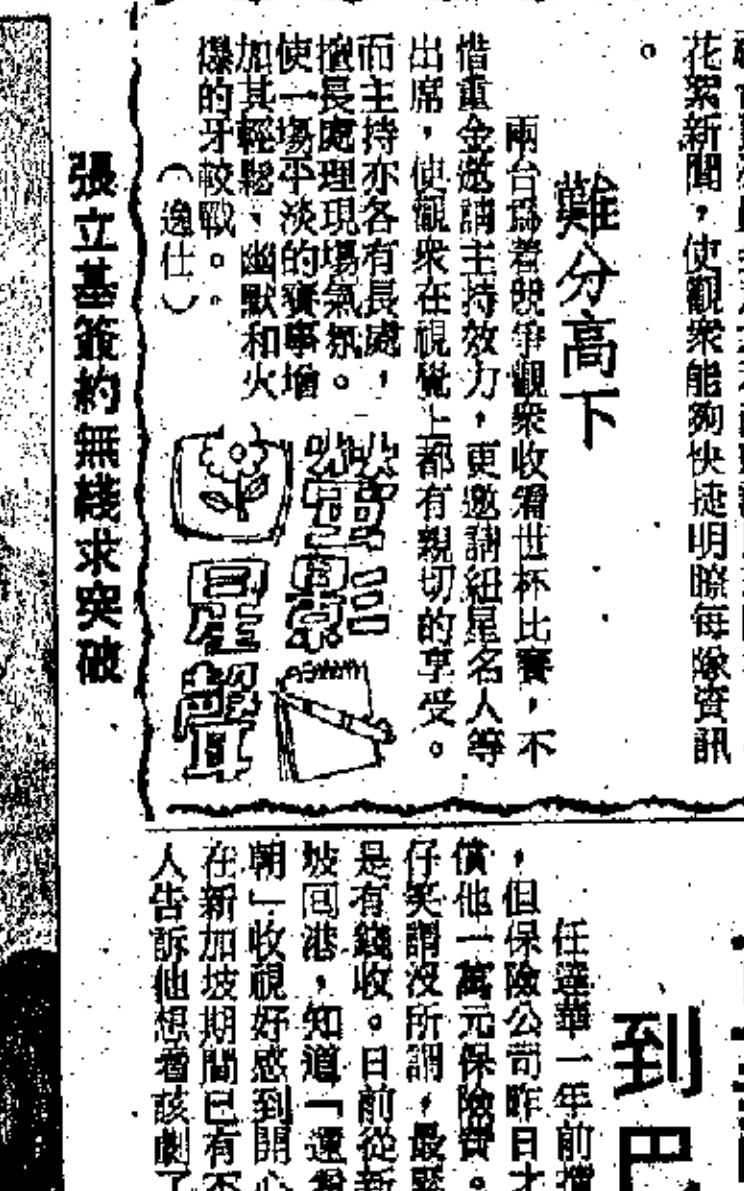 花絮新聞，使觀眾能夠快捷明瞭每隊資訊
。
難分高下
兩台為着競爭觀眾收看世杯比賽，不
惜重金邀請主持效力，更邀請紐星名人等
出席，使觀眾在視覺上都有親切的享受。
而主持亦各有長處，
擅長處理現場氣氛。
使一場平淡的賽事增
加其輕鬆、幽默和火
爆的牙較戰。。
（逸仕）
星聲
張立基簽約無綫求突破
到巴
任達華一年前
，但保險公司昨日才
償他一萬元保險費。
仔笑謂沒所謂，最緊
是有錢收。日前從新
坡回港，知道「還
朝」收視好感到開心
在新加坡期間已有不
人告訴他想看該劇了